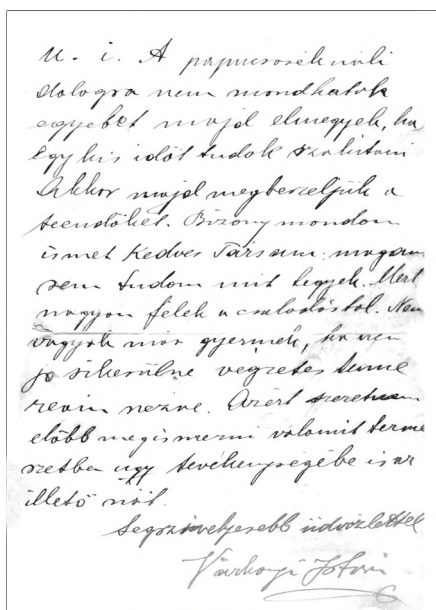 U. i. A papucsosék náli
dologra nem mondhatok
egyebet majd elmegyek, ha
egy kis időt tudok szakitani
Akkor majd megbeszéljük a
teendőket. Bizony mondom
ismet Kedves Társam: magam
sem tudom mit tegyek. Mert
nagyon félek a csalodástol. Nem
vagyok már gyermek, ha nem
jo sikerülne végzetes lenne
reám nézve. Azért szeretném
előbb megismerni valamit terme
szetben úgy tevékenységébe is az
illető nőt.
Legszivélyesebb üdvözlettel
Várhonyi István